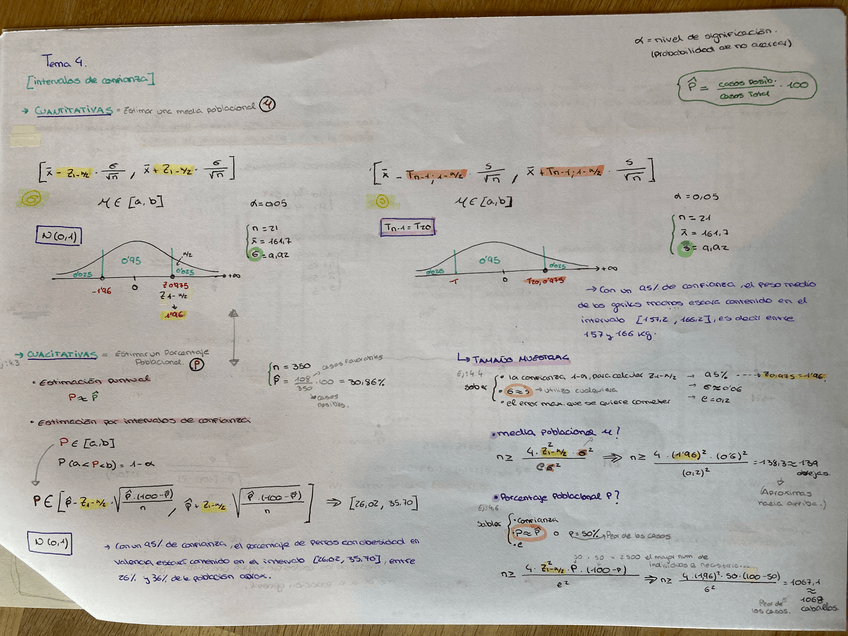 Tema 4.
[intervalos de confianza]
α = nivel de significación.
(Probabilidad de no acertar)
P̂ = casos posib. / casos total · 100
→ CUANTITATIVAS = Estimar una media poblacional μ
[x̄ - Z1-α/2 · σ/√n , x̄ + Z1-α/2 · σ/√n]
σ
μ ∈ [a,b]
α=0,05
N(0,1)
n = 21
x̄ = 161,7
σ = 9,92
0'95
α/2
0'025
0'025
+∞
-1'96
0
Z0'975
Z1-α/2
1'96
[x̄ - Tn-1; 1-α/2 · S/√n , x̄ + Tn-1; 1-α/2 · S/√n]
S
μ ∈ [a,b]
α = 0,05
Tn-1 = T20
n = 21
x̄ = 161,7
S = 9,92
0'95
0'025
0'025
+∞
-T
0
T20, 0'975
→ Con un 95% de confianza, el peso medio
de los gorilas machos estará contenido en el
intervalo [157.2, 166.2], es decir entre
157 y 166 kg.
→ CUALITATIVAS = Estimar un Porcentaje
Poblacional P
• Estimación puntual
P ≈ P̂
n = 350
P̂ = 108/350 · 100 = 30,86%
casos favorables
casos posibles.
• Estimación por intervalos de confianza
P ∈ [a,b]
P(a<P<b) = 1-α
P ∈ [P̂ - Z1-α/2 · √(P̂·(100-P̂)/n) , P̂ + Z1-α/2 √(P̂·(100-P̂)/n)] ⟹ [26,02, 35.70]
N(0,1)
→ Con un 95% de confianza, el porcentaje de perros con obesidad en
valencia estará contenido en el intervalo [26.02, 35.70], entre
26% y 36% de la población aprox.
↳ TAMAÑO MUESTRAL
Ej. 4.4
saber
• la confianza 1-α, para calcular Z1-α/2 → 95% → Z0,975 = 1'96.
• σ ≈ S → utilizo cualquiera → σ ≈ 0'6
• el error max. que se quiere cometer → e = 0,2
• media poblacional μ?
n ≥ 4 · Z²1-α/2 · σ² / e² ⟹ n ≥ 4 · (1'96)² · (0'6)² / (0,2)² = 138,3 ≈ 139
ovejas.
(Aproximas
hacia arriba.)
• Porcentaje Poblacional P?
saber
• confianza
• P ≈ P̂ o P=50% → Peor de los casos
• e
50 · 50 = 2500 el mayor num. de
individuos a necesitar...
n ≥ 4 · Z²1-α/2 · P · (100-P) / e² ⟹ n ≥ 4 · (1'96)² · 50 · (100-50) / 6² = 1067,1
≈
1068
caballos.
Peor de
los casos.